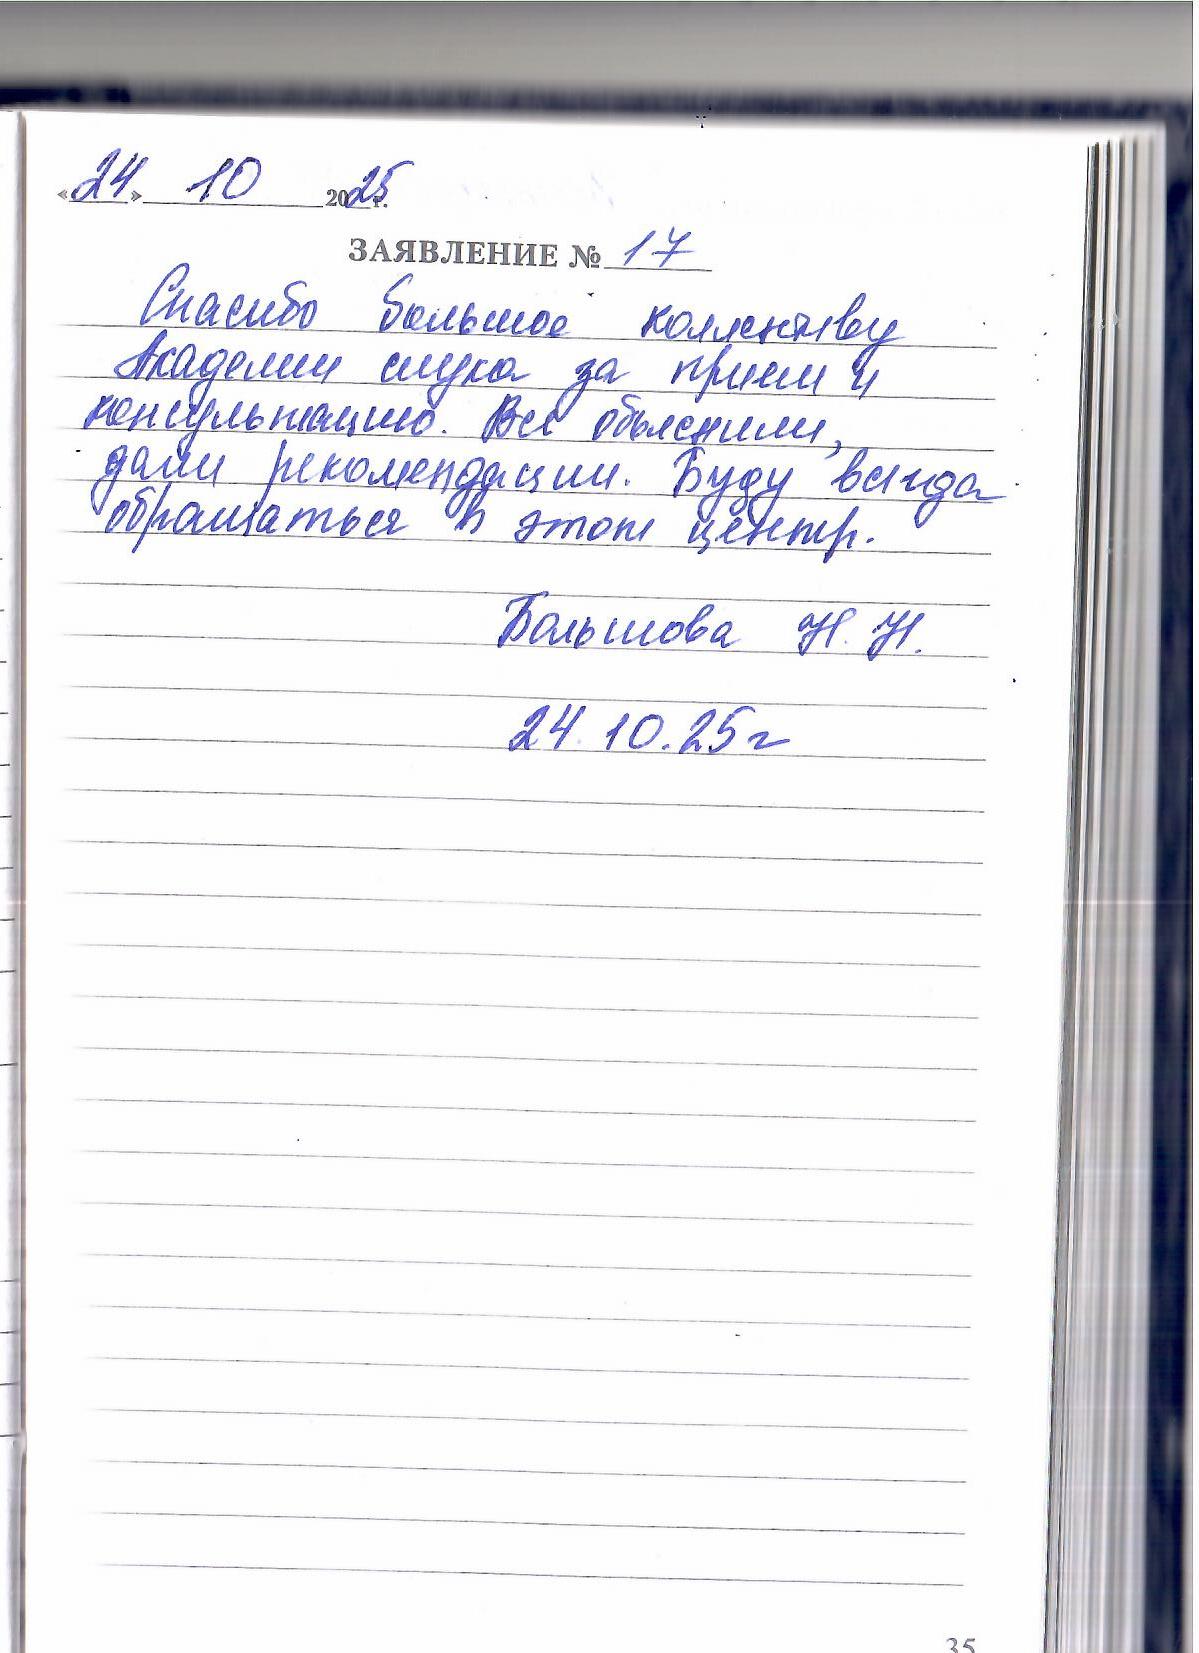 «24» 10 2025 г.
ЗАЯВЛЕНИЕ № 17
Спасибо большое коллективу
Академии слуха за прием и
консультацию. Все объяснили,
дали рекомендации. Буду всегда
обращаться в этот центр.
Большова Н. Н.
24.10.25г
35